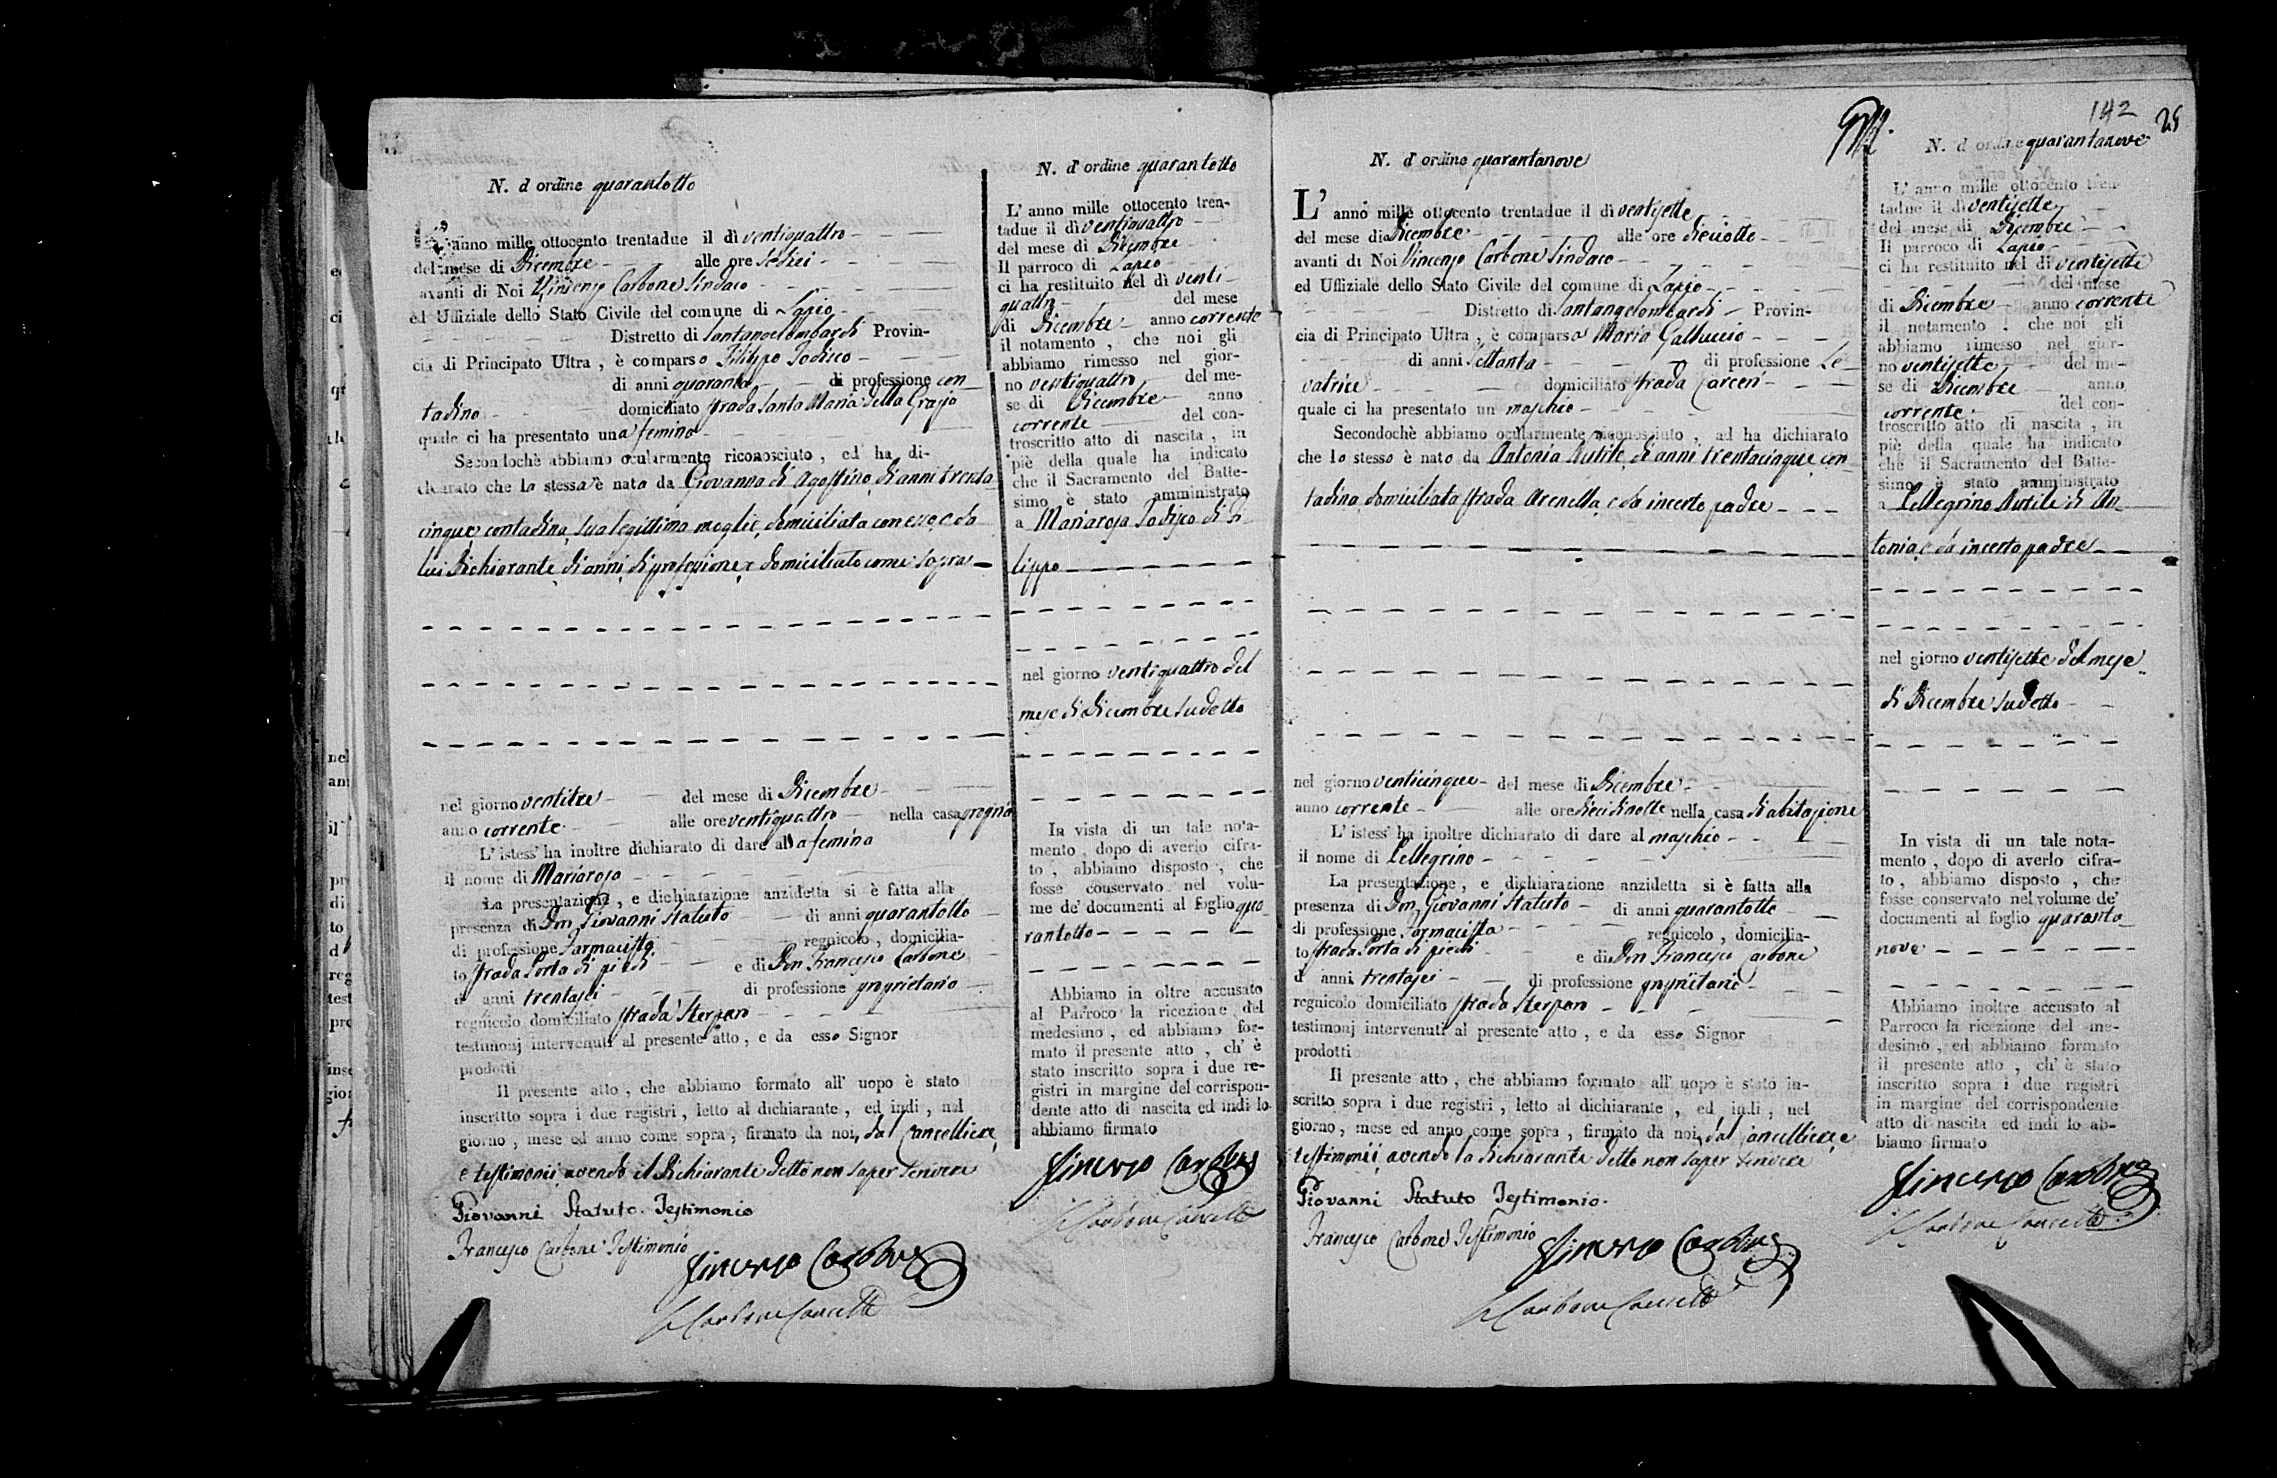 N. d'ordine quarantotto
L'anno mille ottocento trentadue il dì ventiquattro
del mese di Dicembre alle ore sedici
avanti di Noi Vincenzo Carbone Sindaco
ed Uffiziale dello Stato Civile del comune di Lapio
Distretto di Santangelombardi Provin-
cia di Principato Ultra, è comparso Filippo Jodisco
di anni quaranta di professione con
tadino domiciliato strada Santa Maria della Grazia
quale ci ha presentato una femina
Secondochè abbiamo ocularmente riconosciuto, ed ha di-
chiarato che la stessa è nata da Giovanna di Agostino, di anni trenta
cinque, contadina, sua legittima moglie, domiciliata con esso, e da
lui Dichiarante, di anni, di professione, e domiciliato come sopra
nel giorno ventitre del mese di Dicembre
anno corrente alle ore ventiquattro nella casa propria
L'istess' ha inoltre dichiarato di dare alla femina
il nome di Mariarosa
La presentazione, e dichiarazione anzidetta si è fatta alla
presenza di Don Giovanni Statuto di anni quarantotto
di professione Farmacista regnicolo, domicilia-
to strada Porta di piedi e di Don Francesco Carbone
d' anni trentasei di professione proprietario
regnicolo domiciliato strada Sterparo
testimonj intervenuti al presente atto, e da esso Signor
prodotti
Il presente atto, che abbiamo formato all' uopo è stato
inscritto sopra i due registri, letto al dichiarante, ed indi, nel
giorno, mese ed anno come sopra, firmato da noi, dal Cancelliere,
e testimonii, avendo il Dichiarante detto non saper scrivere
Giovanni Statuto Testimonio
Francesco Carbone Testimonio
Vincenzo Carbone
Carbone Cancell.
N. d'ordine quarantotto
L'anno mille ottocento tren-
tadue il dì ventiquattro
del mese di Dicembre
Il parroco di Lapio
ci ha restituito nel dì venti-
quattro del mese
di Dicembre anno corrente
il notamento, che noi gli
abbiamo rimesso nel gior-
no ventiquattro del me-
se di Dicembre anno
corrente del con-
troscritto atto di nascita, in
piè della quale ha indicato
che il Sacramento del Batte-
simo è stato amministrato
a Mariarosa Jodisco di Fi-
lippo
nel giorno ventiquattro del
mese di Dicembre sudetto
In vista di un tale nota-
mento, dopo di averlo cifra-
to, abbiamo disposto, che
fosse conservato nel volu-
me de' documenti al foglio qua-
rantotto
Abbiamo in oltre accusato
al Parroco la ricezione del
medesimo, ed abbiamo for-
mato il presente atto, ch' è
stato inscritto sopra i due re-
gistri in margine del corrispon-
dente atto di nascita ed indi lo
abbiamo firmato
Vincenzo Carbone
Carbone Cancell.
N. d'ordine quarantanove
L' anno mille ottocento trentadue il dì ventisette
del mese di Dicembre alle ore dieciotto
avanti di Noi Vincenzo Carbone Sindaco
ed Uffiziale dello Stato Civile del comune di Lapio
Distretto di Santangelombardi Provin-
cia di Principato Ultra, è comparsa Maria Galluccio
di anni settanta di professione Le-
vatrice domiciliato strada Carceri
quale ci ha presentato un maschio
Secondochè abbiamo ocularmente riconosciuto, ad ha dichiarato
che lo stesso è nato da Antonia Autile, di anni trentacinque, con-
tadina, domiciliata strada Arenella, e da incerto padre
nel giorno venticinque del mese di Dicembre
anno corrente alle ore diecidnotte nella casa di abitazione
L' istess' ha inoltre dichiarato di dare al maschio
il nome di Pellegrino
La presentazione, e dichiarazione anzidetta si è fatta alla
presenza di Don Giovanni Statuto di anni quarantotto
di professione Farmacista regnicolo, domicilia-
to strada Porta di piedi e di Don Francesco Carbone
d' anni trentasei di professione proprietario
regnicolo domiciliato strada Sterparo
testimonj intervenuti al presente atto, e da esso Signor
prodotti
Il presente atto, che abbiamo formato all' uopo è stato in-
scritto sopra i due registri, letto al dichiarante, ed indi, nel
giorno, mese ed anno come sopra, firmato da noi, dal Cancelliere, e
testimonii, avendo la Dichiarante detto non saper scrivere
Giovanni Statuto Testimonio.
Francesco Carbone Testimonio
Vincenzo Carbone
Carbone Cancell.
142
25
N. d'ordine quarantanove
L' anno mille ottocento tren-
tadue il dì ventisette
del mese di Dicembre
Il parroco di Lapio
ci ha restituito nel dì ventisette
del mese
di Dicembre anno corrente
il notamento che noi gli
abbiamo rimesso nel gior-
no ventisette del me-
se di Dicembre anno
corrente del con-
troscritto atto di nascita, in
piè della quale ha indicato
che il Sacramento del Batte-
simo è stato amministrato
a Pellegrino Autile di An-
tonia, e da incerto padre
nel giorno ventisette del mese
di Dicembre sudetto
In vista di un tale nota-
mento, dopo di averlo cifra-
to, abbiamo disposto, che
fosse conservato nel volume de'
documenti al foglio quaranta-
nove
Abbiamo inoltre accusato al
Parroco la ricezione del me-
desimo, ed abbiamo formato
il presente atto, ch' è stato
inscritto sopra i due registri
in margine del corrispondente
atto di nascita ed indi lo ab-
biamo firmato
Vincenzo Carbone
Carbone Cancell.